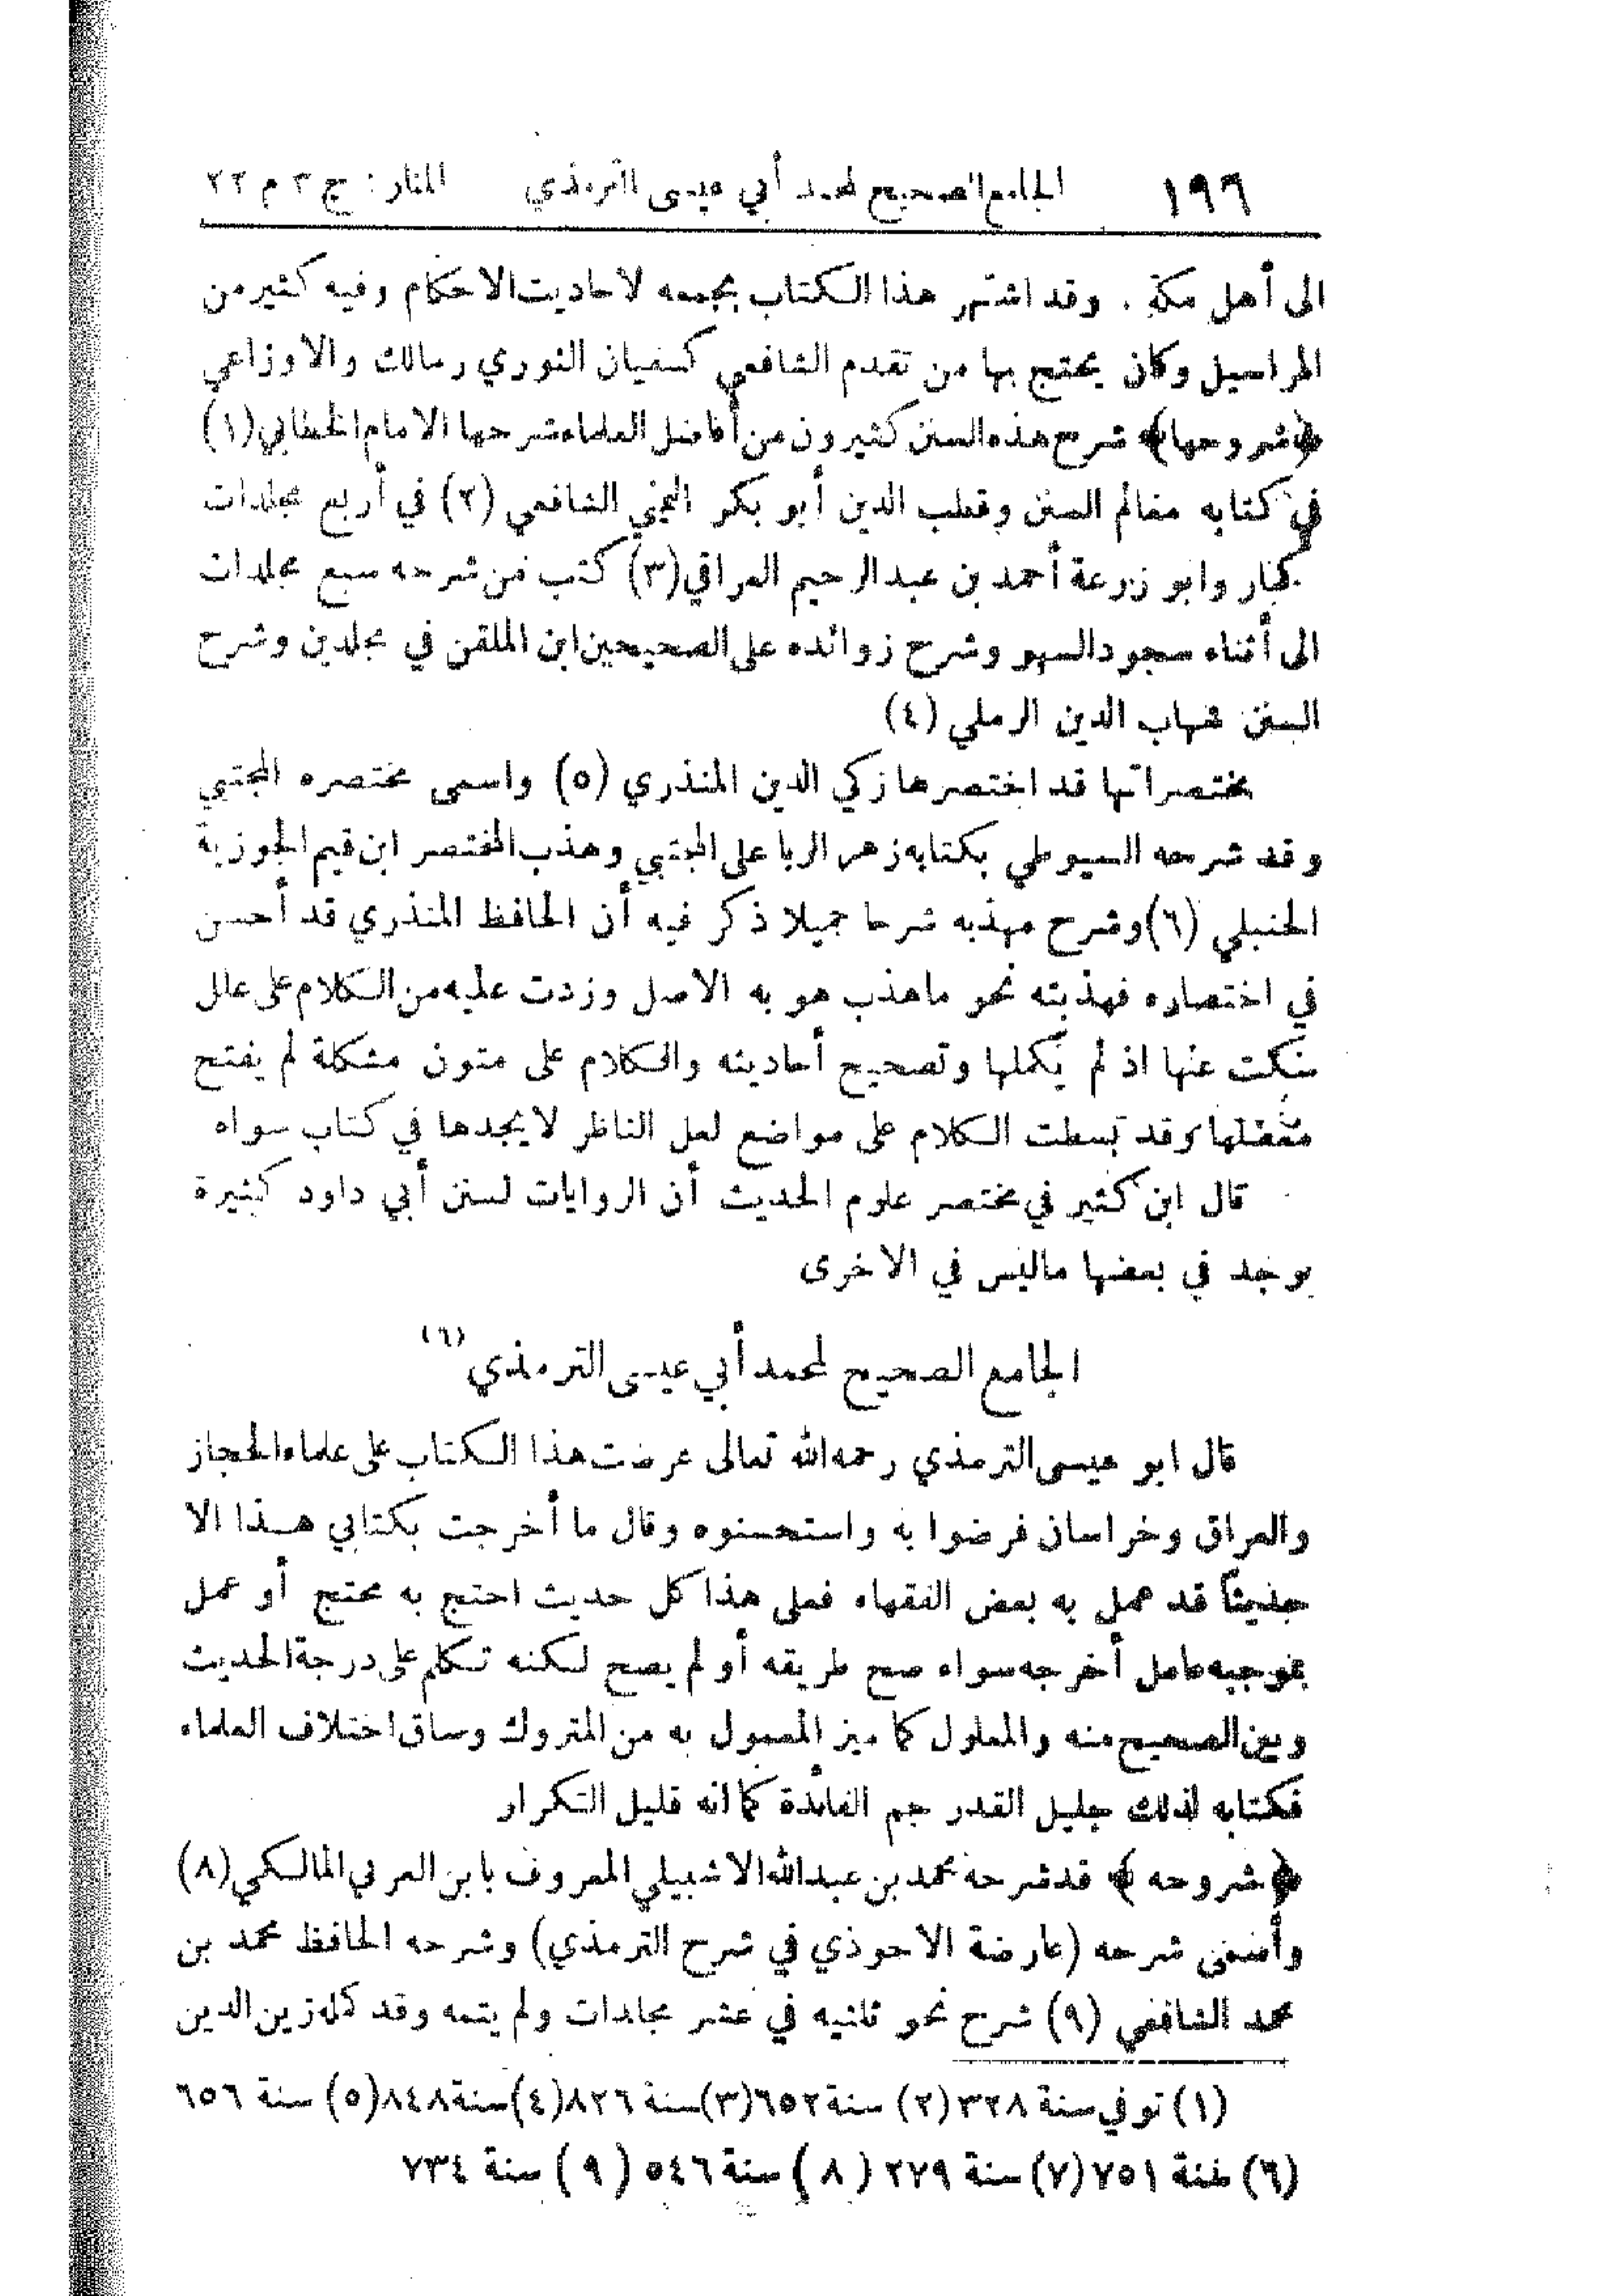 ١٩٦ الجامع الصحيح لمحمد أبي عيسى الترمذي المنار : ج ٣ م ٢٢
الى أهل مكة . وقد اشتهر هذا الكتاب بجمعه لاحاديث الاحكام وفيه كثير من
المراسيل وكان يحتج بها من تقدم الشافعي كسفيان الثوري ومالك والاوزاعي
﴿شروحها﴾ شرح هذه السنن كثيرون من أفاضل العلماء شرحها الامام الخطابي (١)
في كتابه معالم السنن وقطب الدين أبو بكر اليمني الشافعي (٢) في أربع مجلدات
كبار وابو زرعة أحمد بن عبد الرحيم العراقي (٣) كتب من شرحه سبع مجلدات
الى أثناء سجود السهو وشرح زوائده على الصحيحين ابن الملقن في مجلدين وشرح
السنن شهاب الدين الرملي (٤)
مختصراتها قد اختصرها زكي الدين المنذري (٥) واسمى مختصره المجتبي
وقد شرحه السيوطي بكتابه زهر الربا على المجتبي وهذب المختصر ابن قيم الجوزية
الحنبلي (٦) وشرح مهذبه شرحا جميلا ذكر فيه أن الحافظ المنذري قد أحسن
في اختصاره فهذبته نحو ما هذب هو به الاصل وزدت عليه من الكلام على علل
سكت عنها اذ لم يكملها وتصحيح أحاديثه والكلام على متون مشكلة لم يفتح
مقفلها وقد بسطت الكلام على مواضع لعل الناظر لا يجدها في كتاب سواه
قال ابن كثير في مختصر علوم الحديث أن الروايات لسنن أبي داود كثيرة
يوجد في بعضها ماليس في الاخرى
الجامع الصحيح لمحمد أبي عيسى الترمذي (٦)
قال ابو عيسى الترمذي رحمه الله تعالى عرضت هذا الكتاب على علماء الحجاز
والعراق وخراسان فرضوا به واستحسنوه وقال ما أخرجت بكتابي هذا الا
حديثاً قد عمل به بعض الفقهاء فعلى هذا كل حديث احتج به محتج أو عمل
بموجبه عامل أخرجه سواء صح طريقه أو لم يصح لكنه تكلم على درجة الحديث
وبين الصحيح منه والمعلول كما ميز المعمول به من المتروك وساق اختلاف العلماء
فكتابه لذلك جليل القدر جم الفائدة كما انه قليل التكرار
﴿شروحه﴾ قد شرحه محمد بن عبد الله الاشبيلي المعروف بابن العربي المالكي (٨)
وأسمى شرحه (عارضة الاحوذي في شرح الترمذي) وشرحه الحافظ محمد بن
محمد الشافعي (٩) شرح نحو ثلثيه في عشر مجلدات ولم يتمه وقد كمله زين الدين
(١) توفي سنة ٣٢٨ (٢) سنة ٦٥٢ (٣) سنة ٨٢٦ (٤) سنة ٨٤٨ (٥) سنة ٦٥٦
(٦) سنة ٧٥١ (٧) سنة ٢٧٩ (٨) سنة ٥٤٦ (٩) سنة ٧٣٤